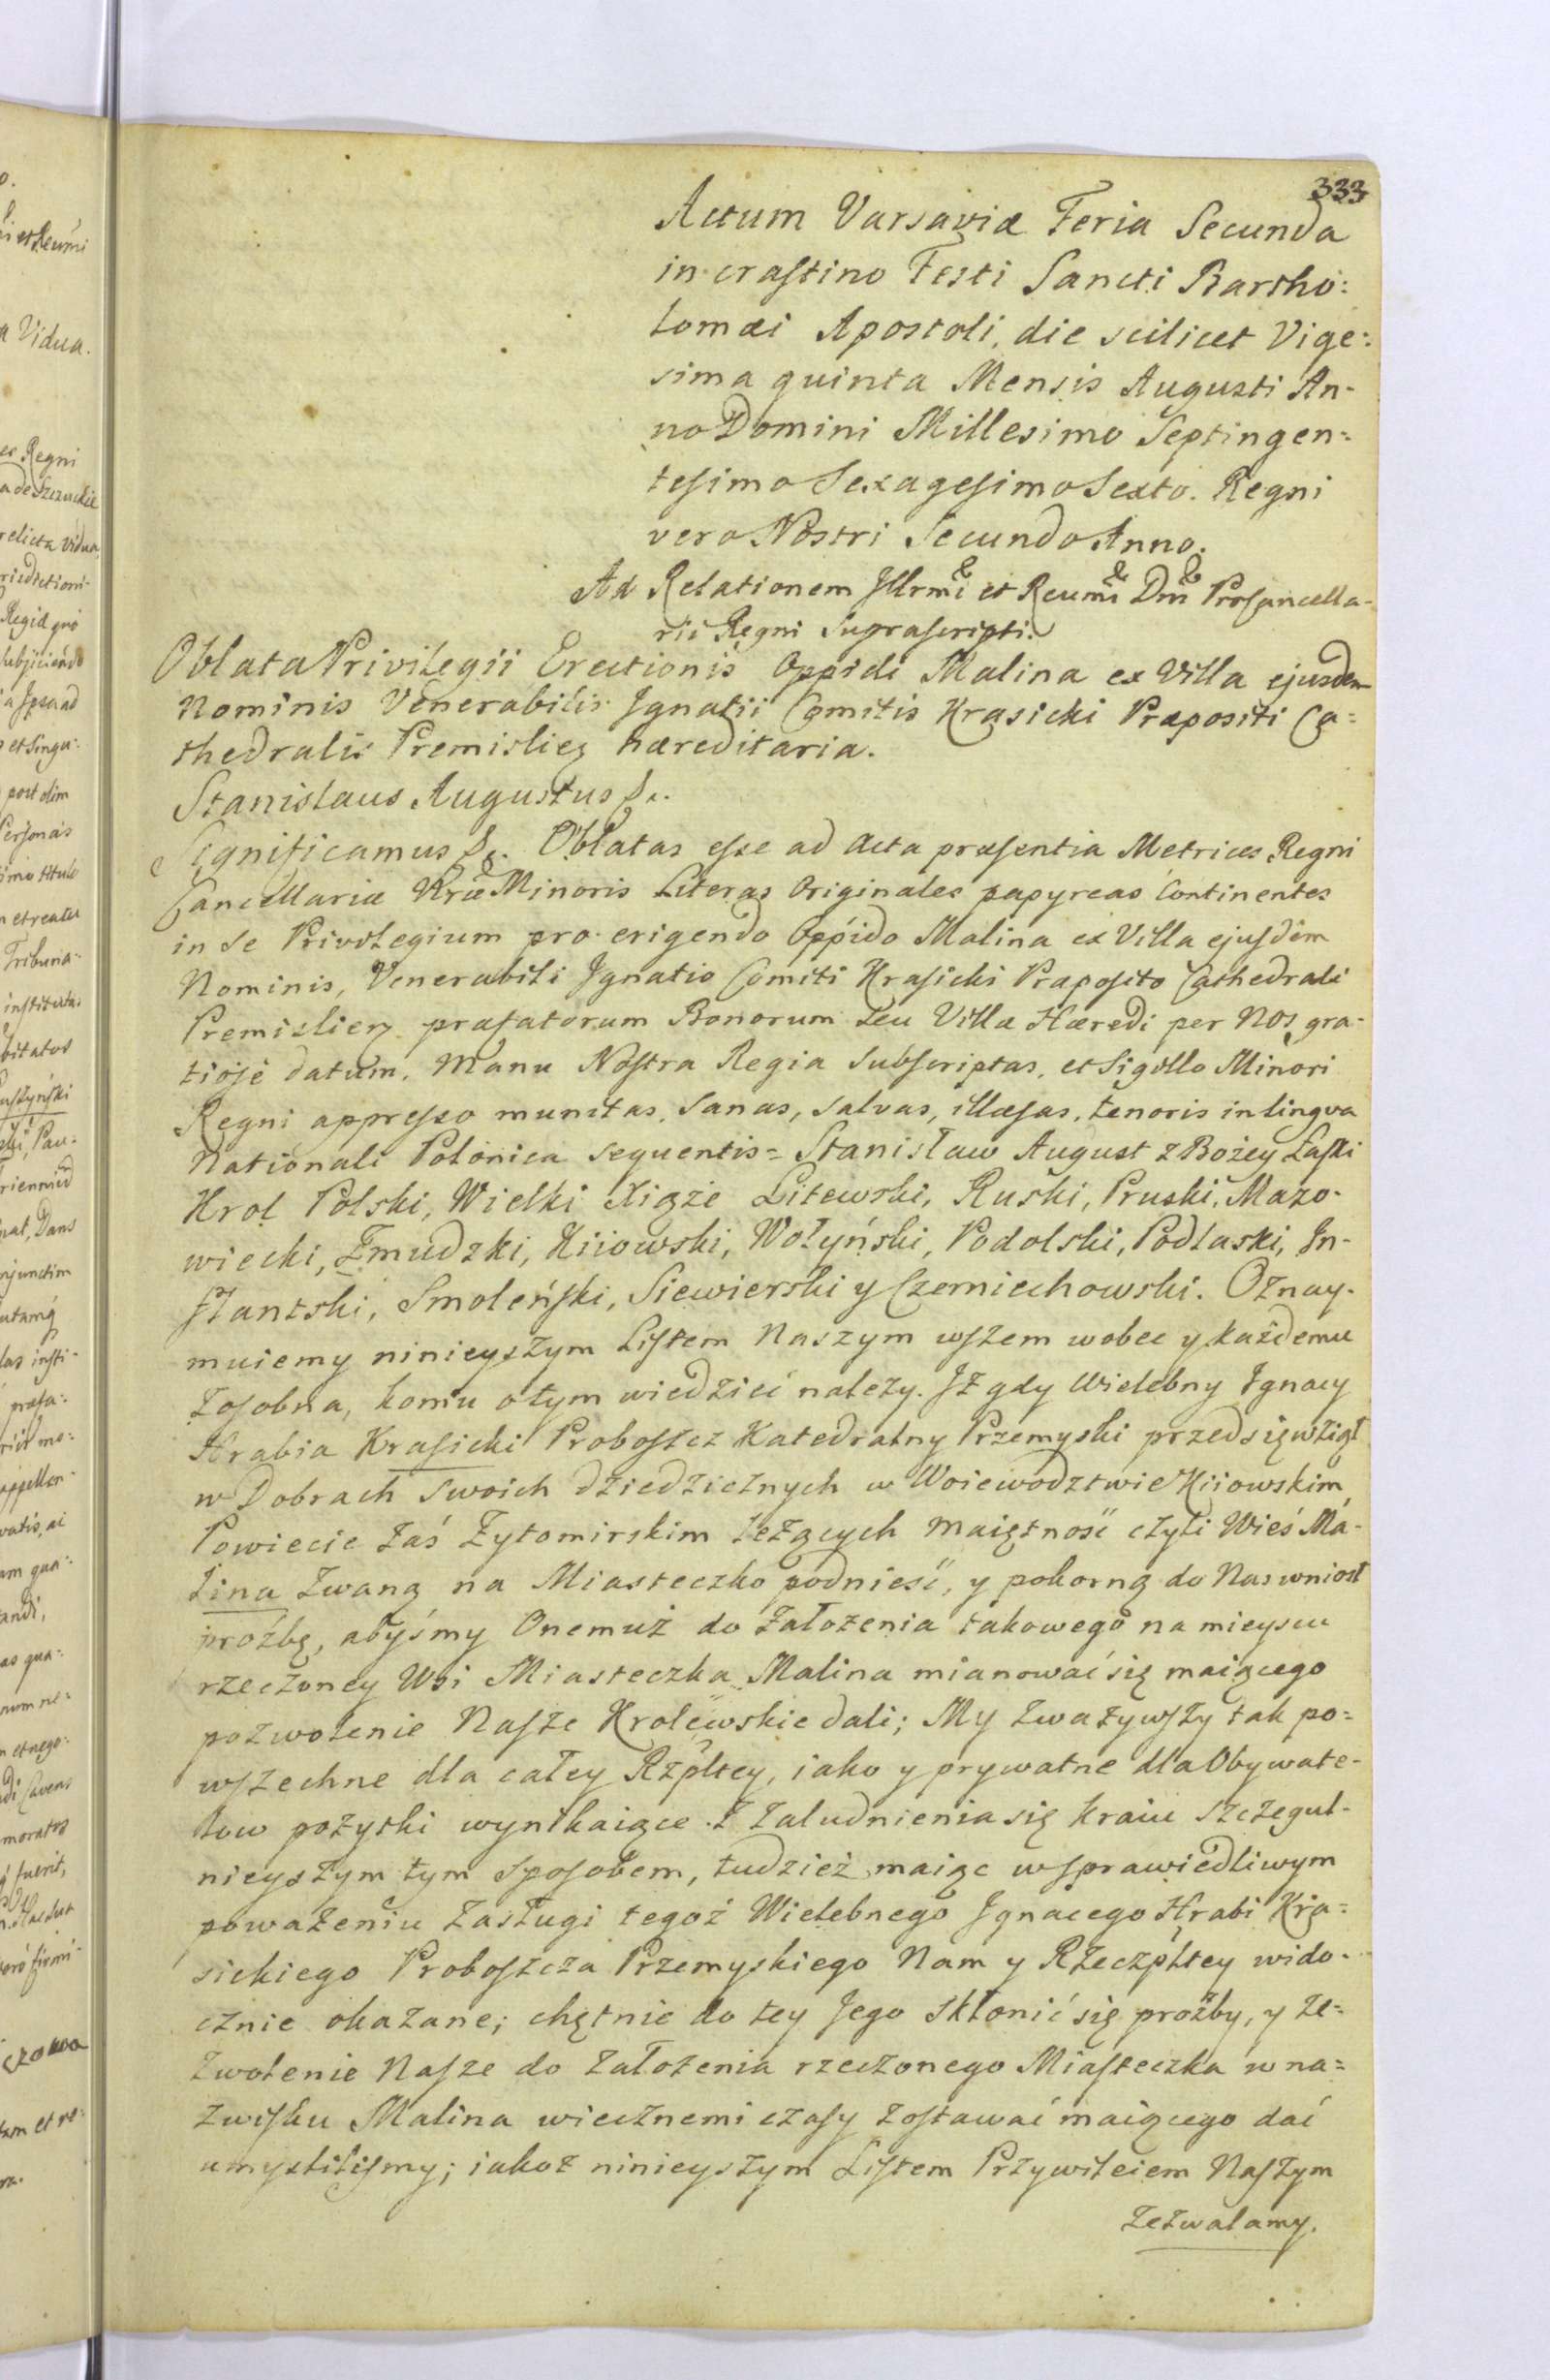 333
Actum Varsaviæ Feria Secunda
in craſtino Festi Sancti Bartho:
lomæi Apostoli, die scilicet Vige:
sima quinta Mensis Augusti An-
no Domini Millesimo Septingen:
teſimo Sexageſimo Sexto. Regni
vero Nostri Secundo Anno.
Ad Relationem Jllrmi et Reumi Dni Procancella-
rii Regni Supraſcripti.
Oblata Privilegii Erectionis Oppidi Malina ex Villa ejusdem
Nominis Venerabilis Jgnatii Comitis Krasicki Præpositi Ca:
thedralis Premislien hæreditaria.
Stanislaus Augustus &.
Significamus &. Oblatas eſse ad Acta præſentia Metrices Regni
Cancellariæ Nræ Minoris Literas Originales papyreas Continentes
in Se Privilegium pro erigendo Oppido Malina ex Villa ejuſdem
Nominis, Venerabili Jgnatio Comiti Kraſicki Præpoſito Cathedrali
Premislien præfatorum Bonorum seu Villæ Hæredi per Nos gra-
tioſè datum. Manu Noſtra Regia Subſcriptas, et Sigillo Minori
Regni appreſso munitas, Sanas, salvas, illæſas, tenoris in lingva
Nationali Polonica sequentis = Stanisław August z Bożey Łaſki
Krol Polski, Wielki Xiąże Litewski, Ruski, Pruski, Mazo-
wiecki, Żmudzki, Kiiowski, Wołyński, Podolski, Podlaski, In-
flantski, Smoleńſki, Siewierski y Czerniechowski. Oznay-
muiemy ninieyszym Liſtem Naszym wſzem wobec y każdemu
zoſobna, komu o tym wiedzieć należy. Jż gdy Wielebny Ignacy
Hrabia Kraſicki Proboſzcz Katedralny Przemyski przedsięwziął
w Dobrach Swoich dziedzicznych w Woiewodztwie Kiiowskim,
Powiecie zaś Żytomirskim leżących maiętność czyli Wieś Ma-
lina zwaną na Miasteczko podnieść, y pokorną do Nas wniosł
proźbę, abyśmy Onemuż do założenia takowego na mieyscu
rzeczoney Wsi Miasteczka Malina mianować się maiącego
pozwolenie Naſze Krolewskie dali; My zważywſzy tak po=
wſzechne dla całey Rzpltey, iako y prywatne dla Obywate-
low pożytki wynikaiące z zaludnienia się kraiu szczegul-
nieyszym tym spoſobem, tudzież maiąc w sprawiedliwym
poważeniu zasługi tegoż Wielebnego Jgnacego Hrabi Kra=
sickiego Proboſzcza Przemyskiego Nam y Rzeczpltey wido-
cznie okazane; chętnie do tey Jego skłonić się proźby, y ze=
zwolenie Naſze do założenia rzeczonego Miaſteczka w na=
zwiſku Malina wiecznemi czaſy zoſtawać maiącego dać
umyśliliſmy; iakoż ninieyszym Liſtem Przywileiem Naſzym
zezwalamy.